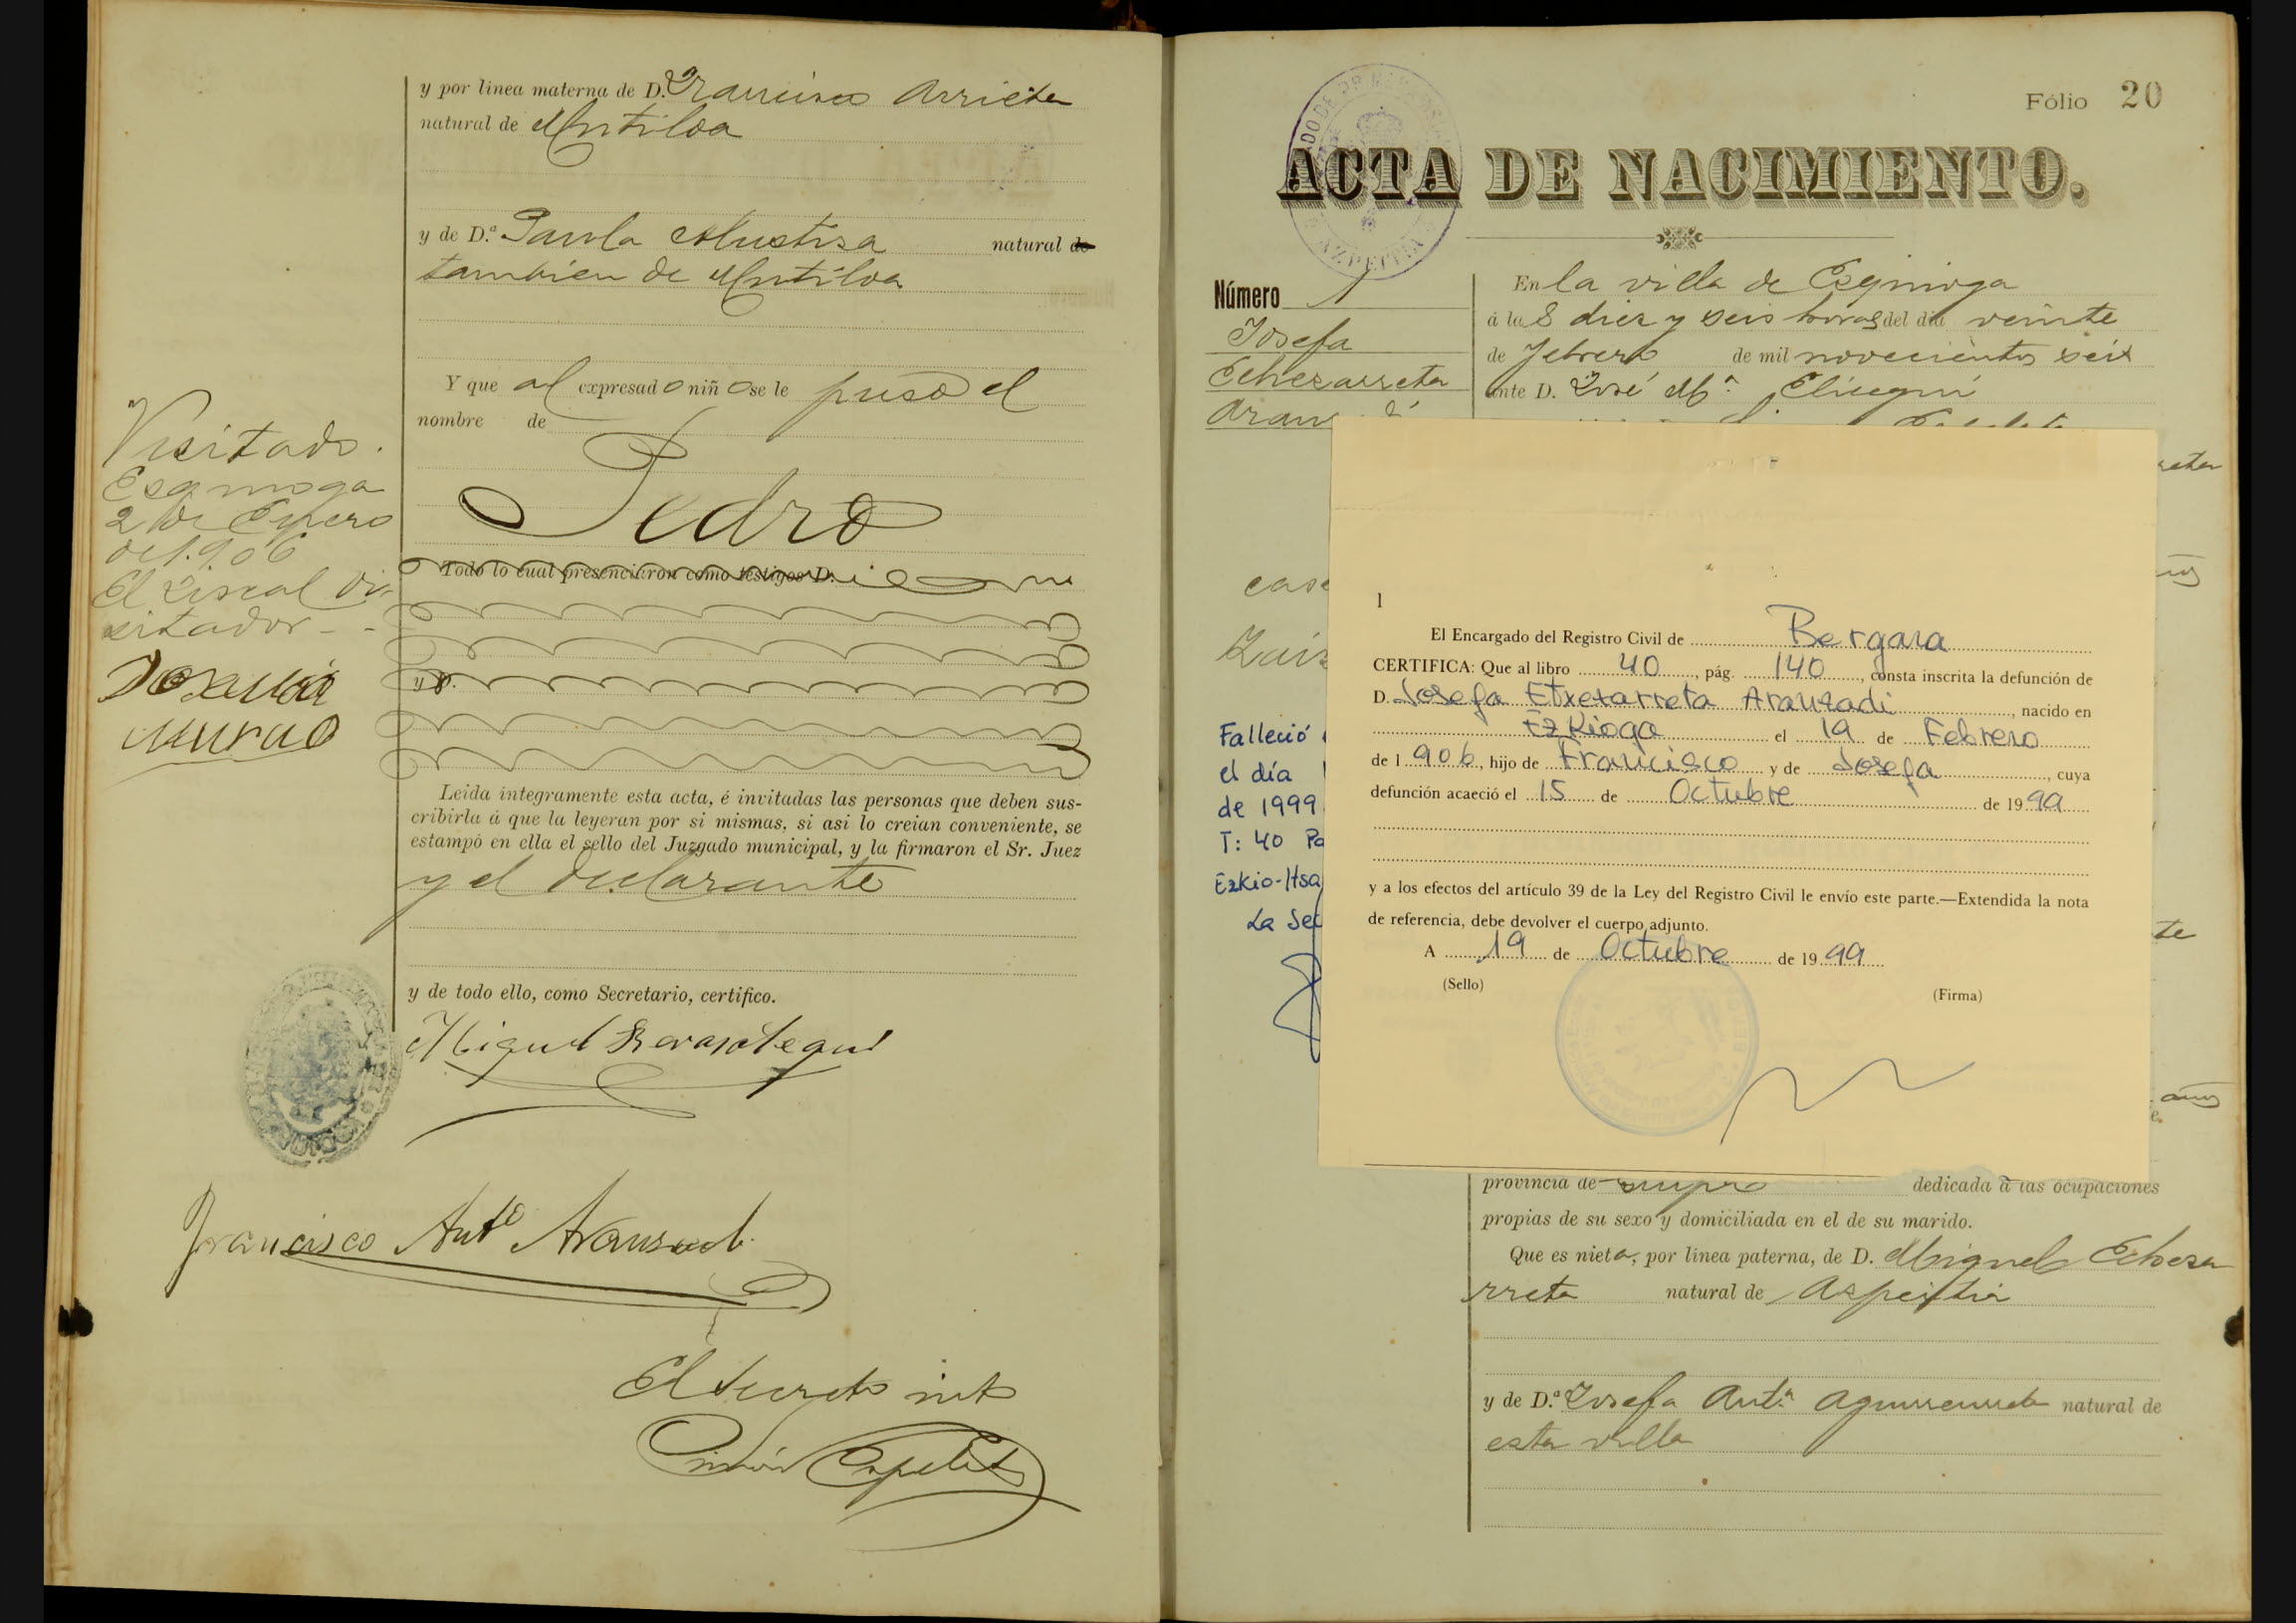 y por linea materna de D. Francisco Arrieta
natural de Mutiloa
y de D.ª Paula Mustisa natural de
tambien de Mutiloa
Y que al expresado niño se le puso el
nombre de
Pedro
Todo lo cual presenciaron como testigos D.
y D.
Leida integramente esta acta, é invitadas las personas que deben sus-
cribirla á que la leyeran por si mismas, si asi lo creian conveniente, se
estampó en ella el sello del Juzgado municipal, y la firmaron el Sr. Juez
y el declarante
y de todo ello, como Secretario, certifico.
Visitado.
Esquioga
2 de Enero
de 1.906
El Fiscal Vi-
sitador - -
Miguel
Francisco Antº Aranzadi
El Secretº intº
Simón
Fólio 20
ACTA DE NACIMIENTO.
AZPEITIA
Número 1
Josefa
Echezarreta
Aran
En la villa de Ezquioga
á las diez y seis horas del dia veinte
de Febrero de mil novecientos seis
ante D. José Mª. Elicegui
Falleció
el día
de 1999
T: 40 Pa
Ezkio-Itsa
La Sec
1
El Encargado del Registro Civil de Bergara
CERTIFICA: Que al libro 40, pág. 140, consta inscrita la defunción de
D. Josefa Etxezarreta Aranzadi, nacido en
Ezkioga el 19 de Febrero
de 1 906, hijo de Francisco y de Josefa, cuya
defunción acaeció el 15 de Octubre de 1999
y a los efectos del artículo 39 de la Ley del Registro Civil le envío este parte.—Extendida la nota
de referencia, debe devolver el cuerpo adjunto.
A 19 de Octubre de 1999
(Sello)
(Firma)
provincia de dedicada á las ocupaciones
propias de su sexo y domiciliada en el de su marido.
Que es nieta, por linea paterna, de D. Miguel Echeza
rreta natural de Azpeitia
y de D.ª Josefa Ant.ª natural de
esta villa